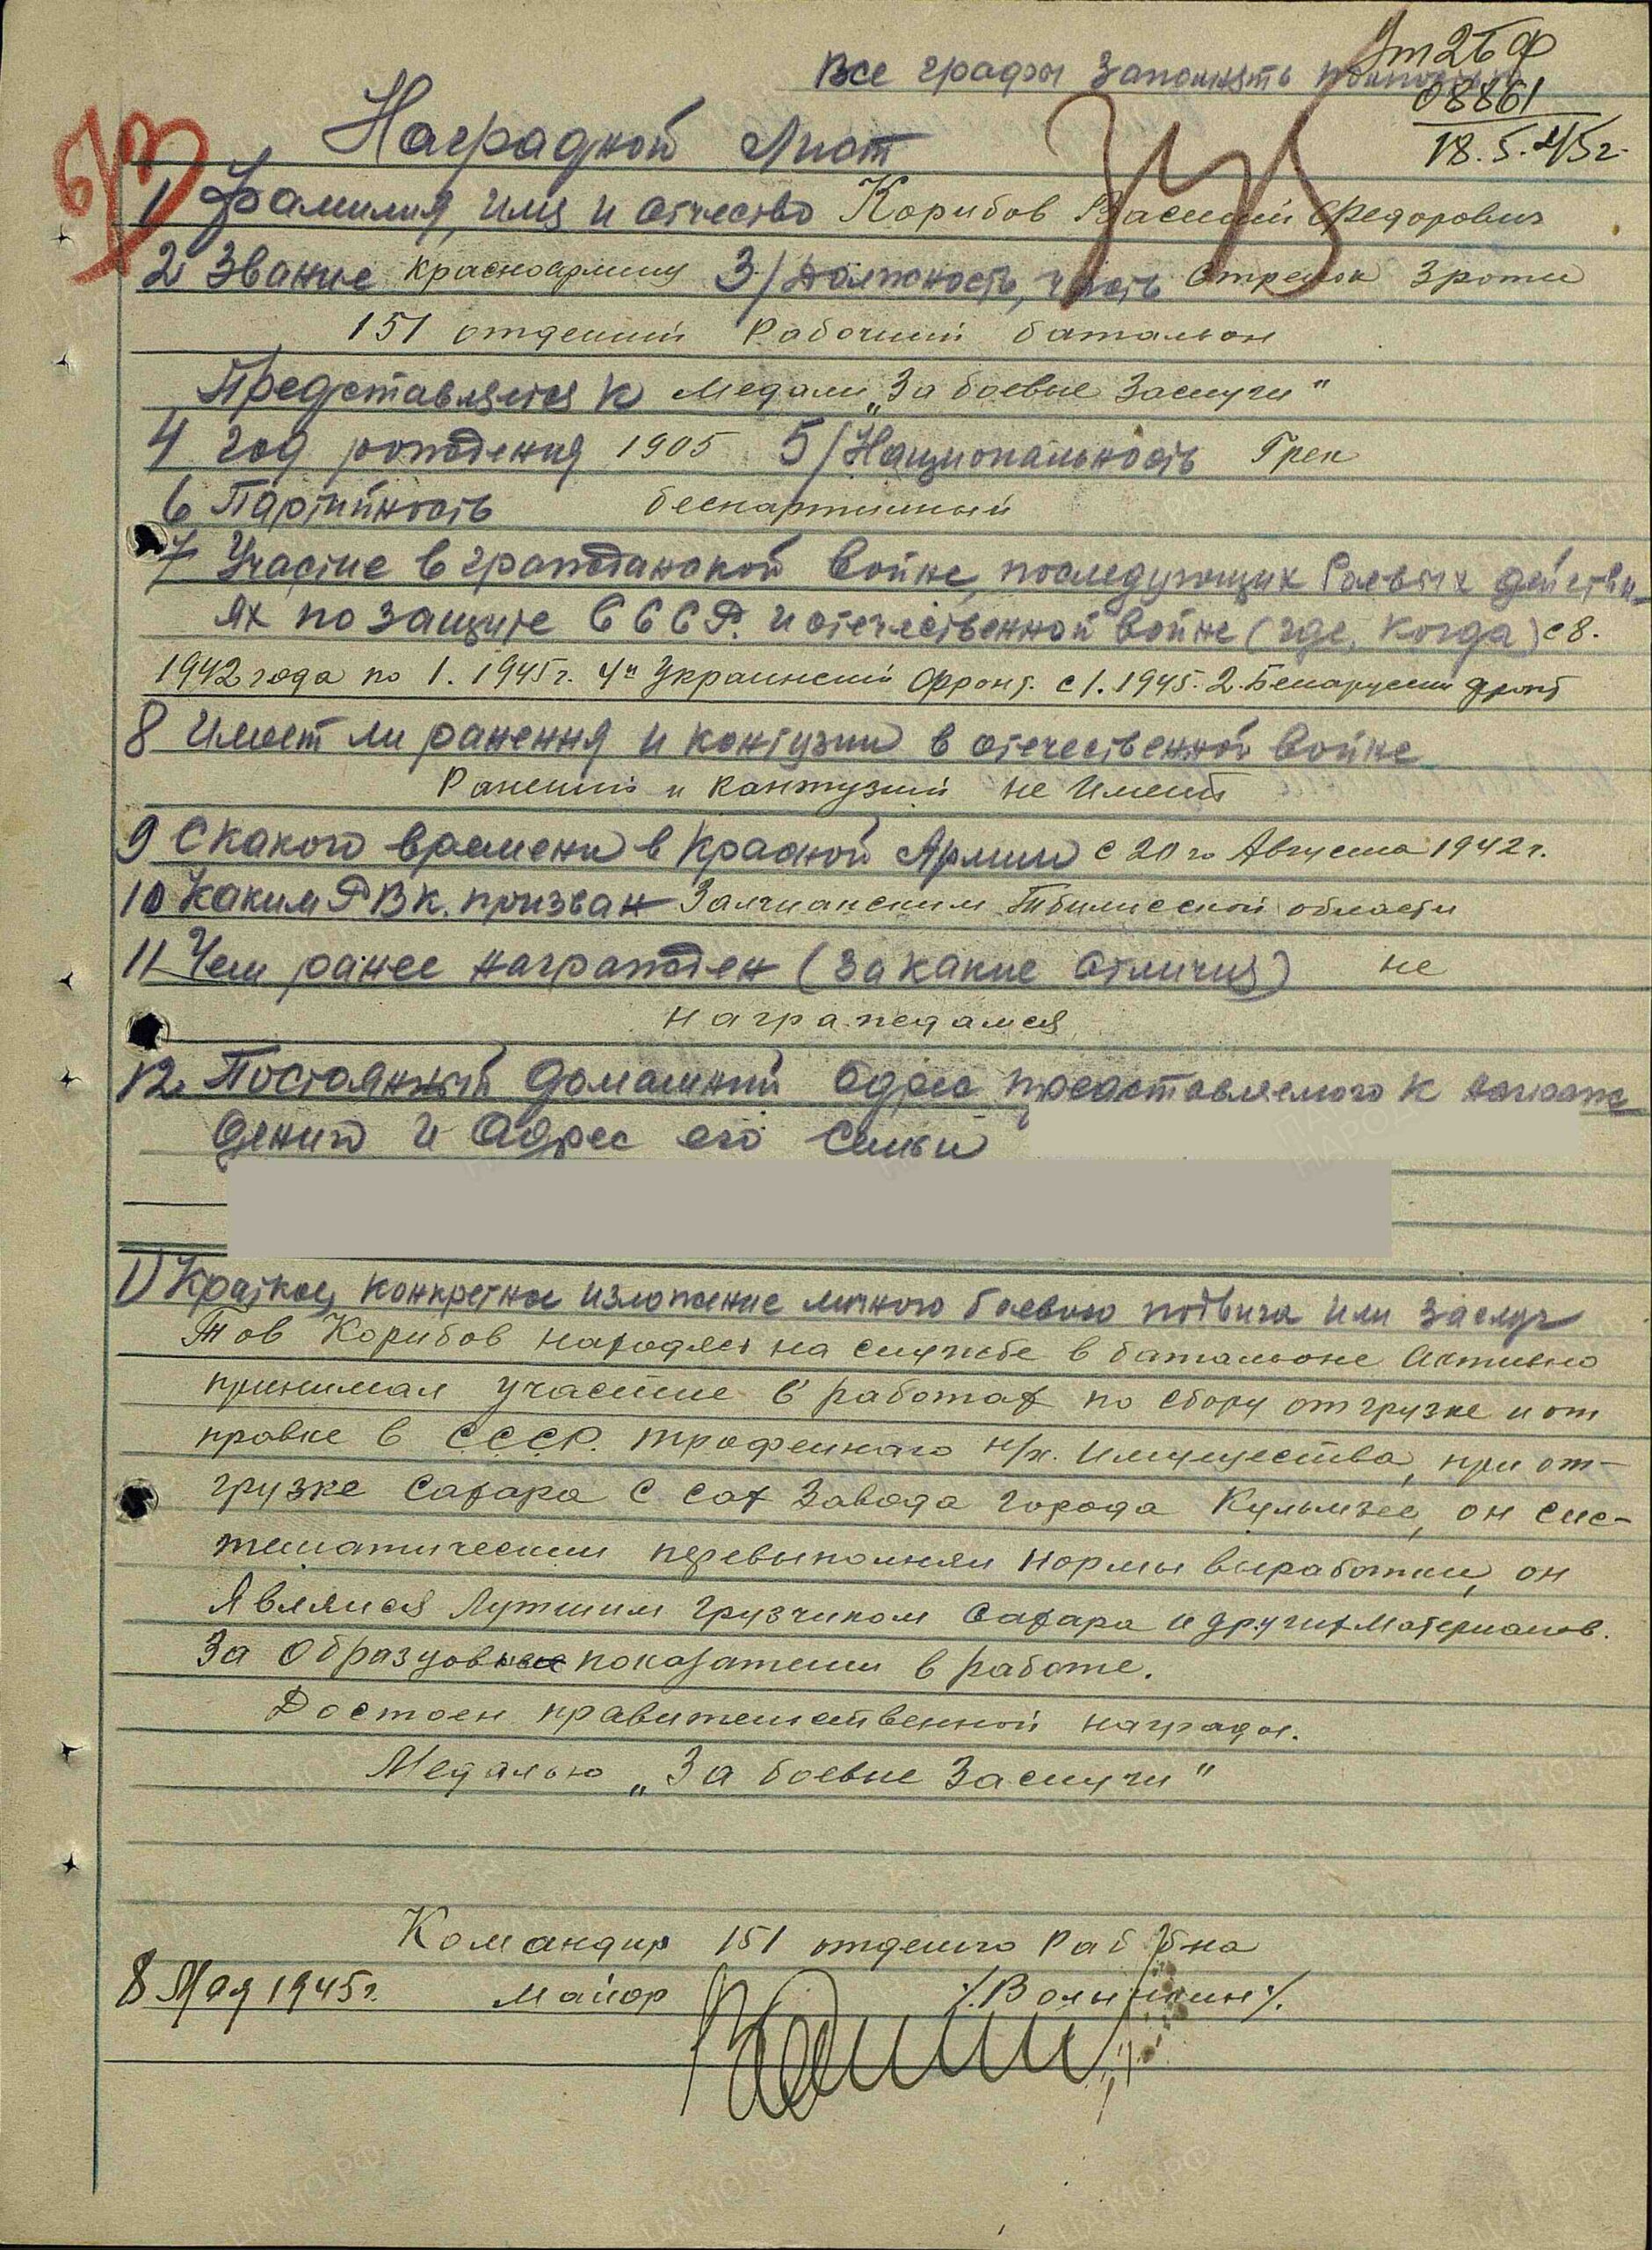 Все графы заполнять
08861
18.5.45г.
Наградной Лист
1 Фамилия, имя и отчество Корибов Василий Федорович
2 Звание красноармиец 3/ Должность, часть Стрелок 3 роты
151 отдельный Рабочий батальон
Представляется к медали „За боевые Заслуги"
4 год рождения 1905 5/ Национальность Грек
6 Партийность беспартийный
7 Участие в гражданской войне, последующих боевых действи-
ях по защите СССР и отечественной войне (где, когда) с 8.
1942 года по 1. 1945 г. 4й Украинский Фронт. с 1. 1945. 2. Беларуский фронт
8 Имеет ли ранения и контузии в отечественной войне
Ранений и кантузий не Имеет
9 С какого времени в Красной Армии с 20 го Августа 1942 г.
10 Каким РВК. призван Залчианским Тбилисской области
11 Чем ранее награжден (за какие отличия) не
награждался
12. Постоянный домашний адрес представляемого к награж
дению и адрес его семьи
1) Краткое, конкретное изложение личного боевого подвига или заслуг
Тов Корибов находясь на службе в батальоне Активно
принимал участие в работах по сбору отгрузке и от
правке в СССР. трофейнаго н/х. Имущества, при от-
грузке Сахара с сах Завода города Кульмзее, он сис-
тематически перевыполнял Нормы выработки, он
Являлся Лутшим грузчиком Сахара и других Материалов.
За Образцовые показатели в работе.
Достоен правительственной награды.
Медалью „За боевые Заслуги"
Командир 151 отдельного Раб б-на
8 Мая 1945г. майор /.Волынкин/.